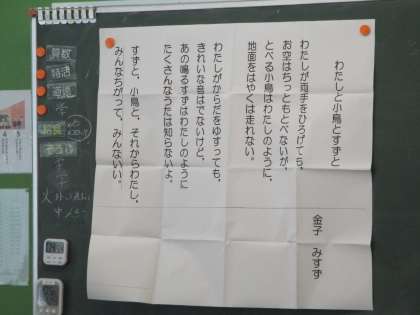 わたしと小鳥とすずと
金子 みすず
わたしが両手をひろげても、
お空はちっともとべないが、
とべる小鳥はわたしのように、
地面をはやくは走れない。
わたしがからだをゆすっても、
きれいな音はでないけど、
あの鳴るすずはわたしのように
たくさんなうたは知らないよ。
すずと、小鳥と、それからわたし、
みんなちがって、みんないい。
算数